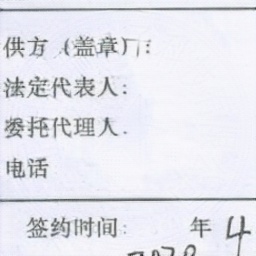 供方（盖章）：
法定代表人：
委托代理人．
电话
签约时间：　　年4